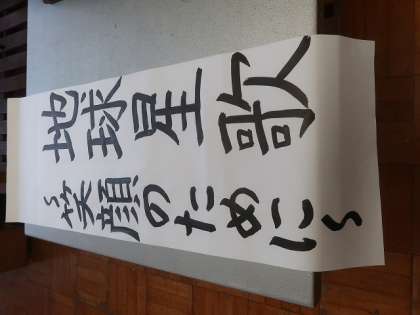 地球星歌
～笑顔のために～